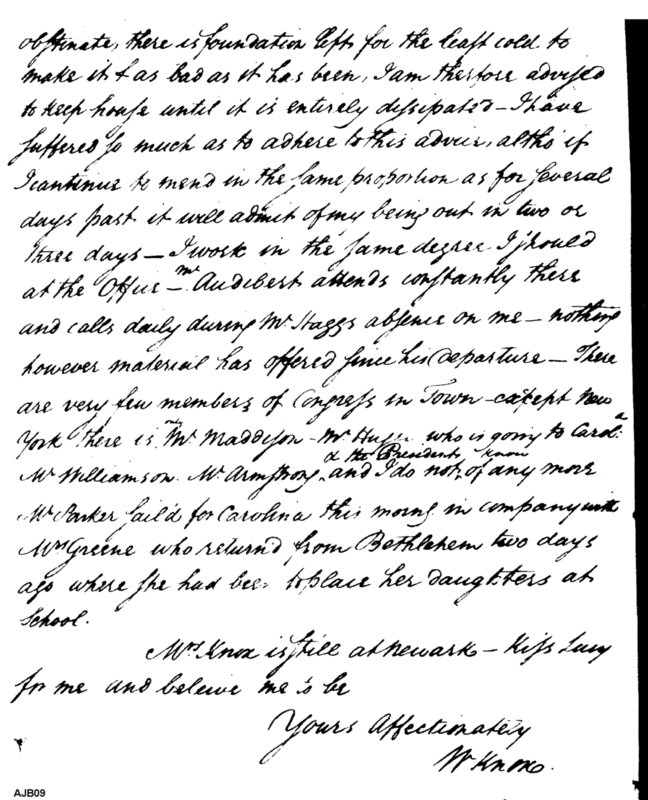 obstinate, there is foundation left for the least cold to
make it as bad as it has been, I am therfore advised
to keep house until it is entirely dissipated – I have
suffered so much as to adhere to this advice, altho' if
I continue to mend in the same proportion as for several
days past it will admit of my being out in two or
three days – I work in the same degree I should
at the Office – Mr. Audibert attends constantly there
and calls daily during Mr. Haggs absence on me – nothing
however material has offered since his departure – There
are very few members of Congress in Town – except New
York there is Mr Maddison – Mr Huger who is going to Carola
& the President know
Mr Williamson. Mr Armstrong, and I do not of any more
Mr Parker sail'd for Carolina this morng in company with
Mrs Greene who return'd from Bethlehem two days
ago where she had bee to place her daughters at
School.
Mrs Knox is still at Newark – Kiss Lucy
for me and beleive me to be
Yours Affectionately
W Knox.
AJB09